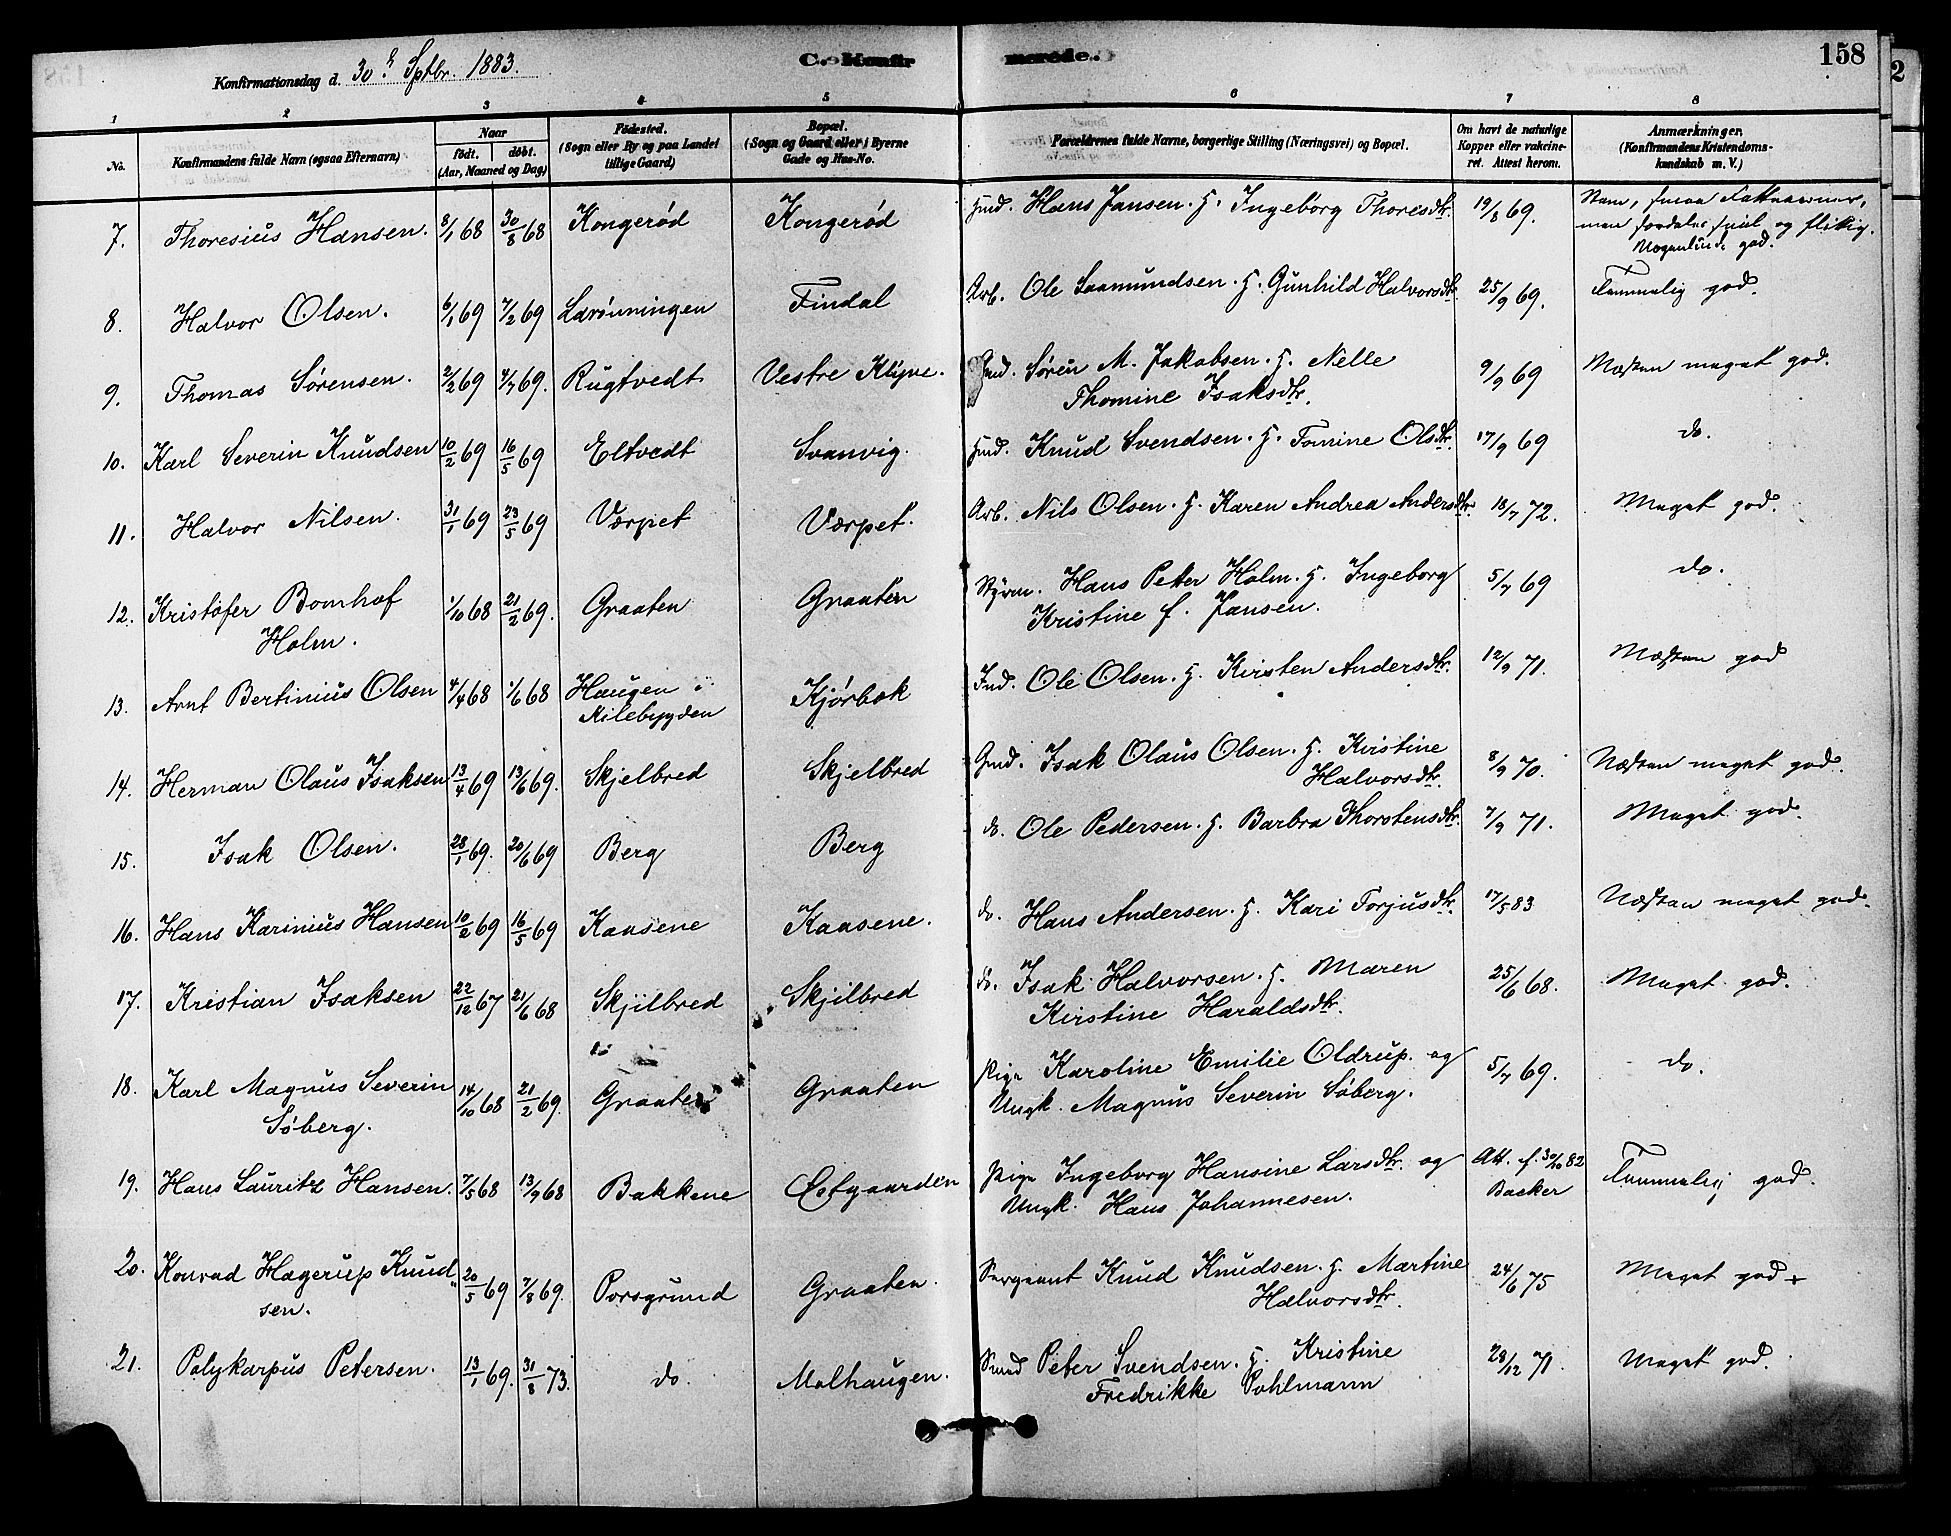 158
2
Konfirmationsdag d. 30te Sptbr. 1883.
C. Konfirmerede.
1 2 3 4 5 6 7 8
No. Konfirmandens fulde Navn (ogsaa Efternavn) Naar født. døbt. (Aar, Maaned og Dag) Fødested. (Sogn eller By og paa Landet tillige Gaard) Bopæl. (Sogn og Gaard eller i Byerne Gade og Hus-No. Forældrenes fulde Navne, borgerlige Stilling (Næringsvei) og Bopæl. Om havt de naturlige Kopper eller vakcineret. Attest herom. Anmærkninger, (Konfirmandens Kristendomskundskab m. V.)
7. Thoresius Hansen. 8/1 68 30/8 68 Kongerød Kongerød Hmd. Hans Jansen. H. Ingeborg Thoresdtr. 19/8 69. men og flittig. Nogenlunde god.
8. Halvor Olsen. 6/1 69 7/2 69 Lørønningen Findal Arb. Ole Saamundsen. H. Gunhild Halvorsdtr. 25/9 69. Temmelig god.
9. Thomas Sørensen. 2/2 69 4/7 69. Rugtvedt Vestre Klyve. Gmd. Søren M. Jakobsen. H. Nelle Thomine Isaksdtr. 9/9 69 Næsten meget god.
10. Karl Severin Knudsen 10/2 69 16/5 69 Eltvedt Svanvig. Hmd. Knud Svendsen. H. Tomine Olsdtr. 17/9 69 do.
11. Halvor Nilsen. 31/1 69 23/5 69 Værpet Værpet. Arb. Nils Olsen. H. Karen Andrea Andersdtr. 18/7 72. Meget god.
12. Kristofer Bomhof Holm. 1/10 68 21/2 69. Graaten Graaten Styrm. Hans Peter Holm. H. Ingeborg Kristine f. Jansen. 5/7 69 do.
13. Arnt Bertinius Olsen 4/4 68 1/6 68 Haugen i Kilebygden Kjørbæk Ind. Ole Olsen. H. Kirsten Andersdtr. 12/9 71. Næsten god
14. Herman Olaus Isaksen 13/4 69 13/6 69. Skjelbred Skjelbred Gmd. Isak Olaus Olsen. H. Kirstine Halvorsdtr. 8/9 70. Næsten meget god.
15. Isak Olsen. 28/1 69. 20/6 69 Berg Berg do. Ole Pedersen. H. Barbra Thorstensdtr. 7/9 71. Meget god.
16. Hans Karinius Hansen 10/2 69 16/5 69 Kaasene Kaasene. do. Hans Andersen. H. Kari Torjusdtr. 17/5 83 Næsten meget god.
17. Kristian Isaksen 22/12 67 21/6 68 Skjilbred Skjilbred do. Isak Halvorsen. H. Maren Kirstine Haraldsdtr. 25/6 68. Meget god.
18. Karl Magnus Severin Söberg. 14/10 68 21/2 69. Graaten Graaten Pige Karoline Emilie Oldrup. og Ungk. Magnus Severin Söberg. 5/7 69. do.
19. Hans Lauritz Hansen. 7/5 68 13/9 68 Bakkene Østgaarden Pige Ingeborg Hansine Larsdtr. og Ungk. Hans Johannesen. Att. f. 30/10 82 Backer Temmelig god.
20. Konrad Hagerup Knudsen. 20/5 69 7/8 69. Porsgrund Graaten. Sergeant Knud Knudsen. H. Martine Halvorsdtr. 24/6 75 Meget god +
21. Polykarpus Petersen. 13/1 69. 31/8 73. do. Molhaugen. Smed Peter Svendsen. H. Kristine Fredrikke Pohlmann 28/12 71. Meget god.